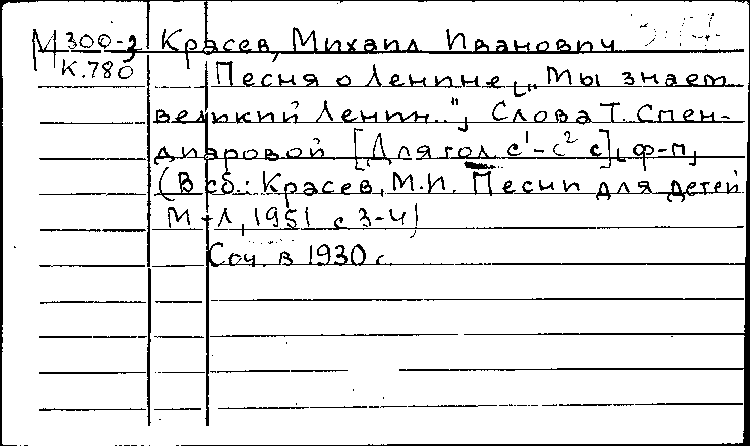 М 300-3 Красев, Михаил Иванович
К.780 Песня о Ленине [„Мы знаем
великий Ленин.."] Слова Т. Спен-
диаровой. [Для гол с¹-с² с] ф-п,
(В сб.: Красев, М.И. Песни для детей
М-Л, 1951 с 3-4)
Соч. в 1930 г.